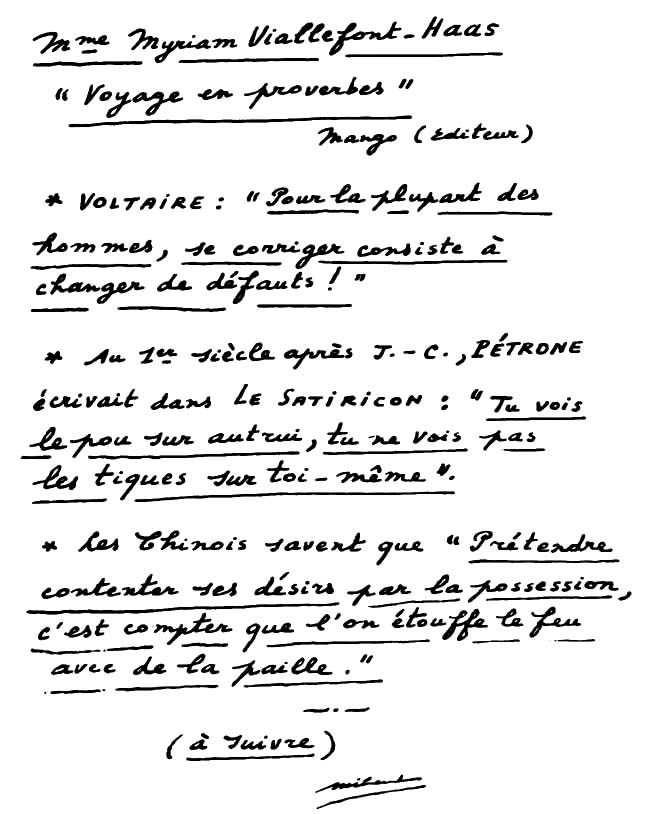 Mme Myriam Viallefont-Haas
"Voyage en proverbes"
Mango (Éditeur)
* VOLTAIRE : "Pour la plupart des
hommes, se corriger consiste à
changer de défauts ! "
* Au 1er siècle après J.-C., PÉTRONE
écrivait dans LE SATIRICON : "Tu vois
le pou sur autrui, tu ne vois pas
les tiques sur toi-même".
* Les Chinois savent que "Prétendre
contenter ses désirs par la possession,
c'est compter que l'on étouffe le feu
avec de la paille."
(à suivre)